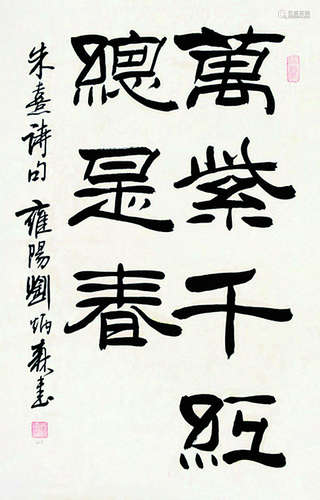 萬紫千紅
總是春
朱熹詩句 雍陽劉炳森書